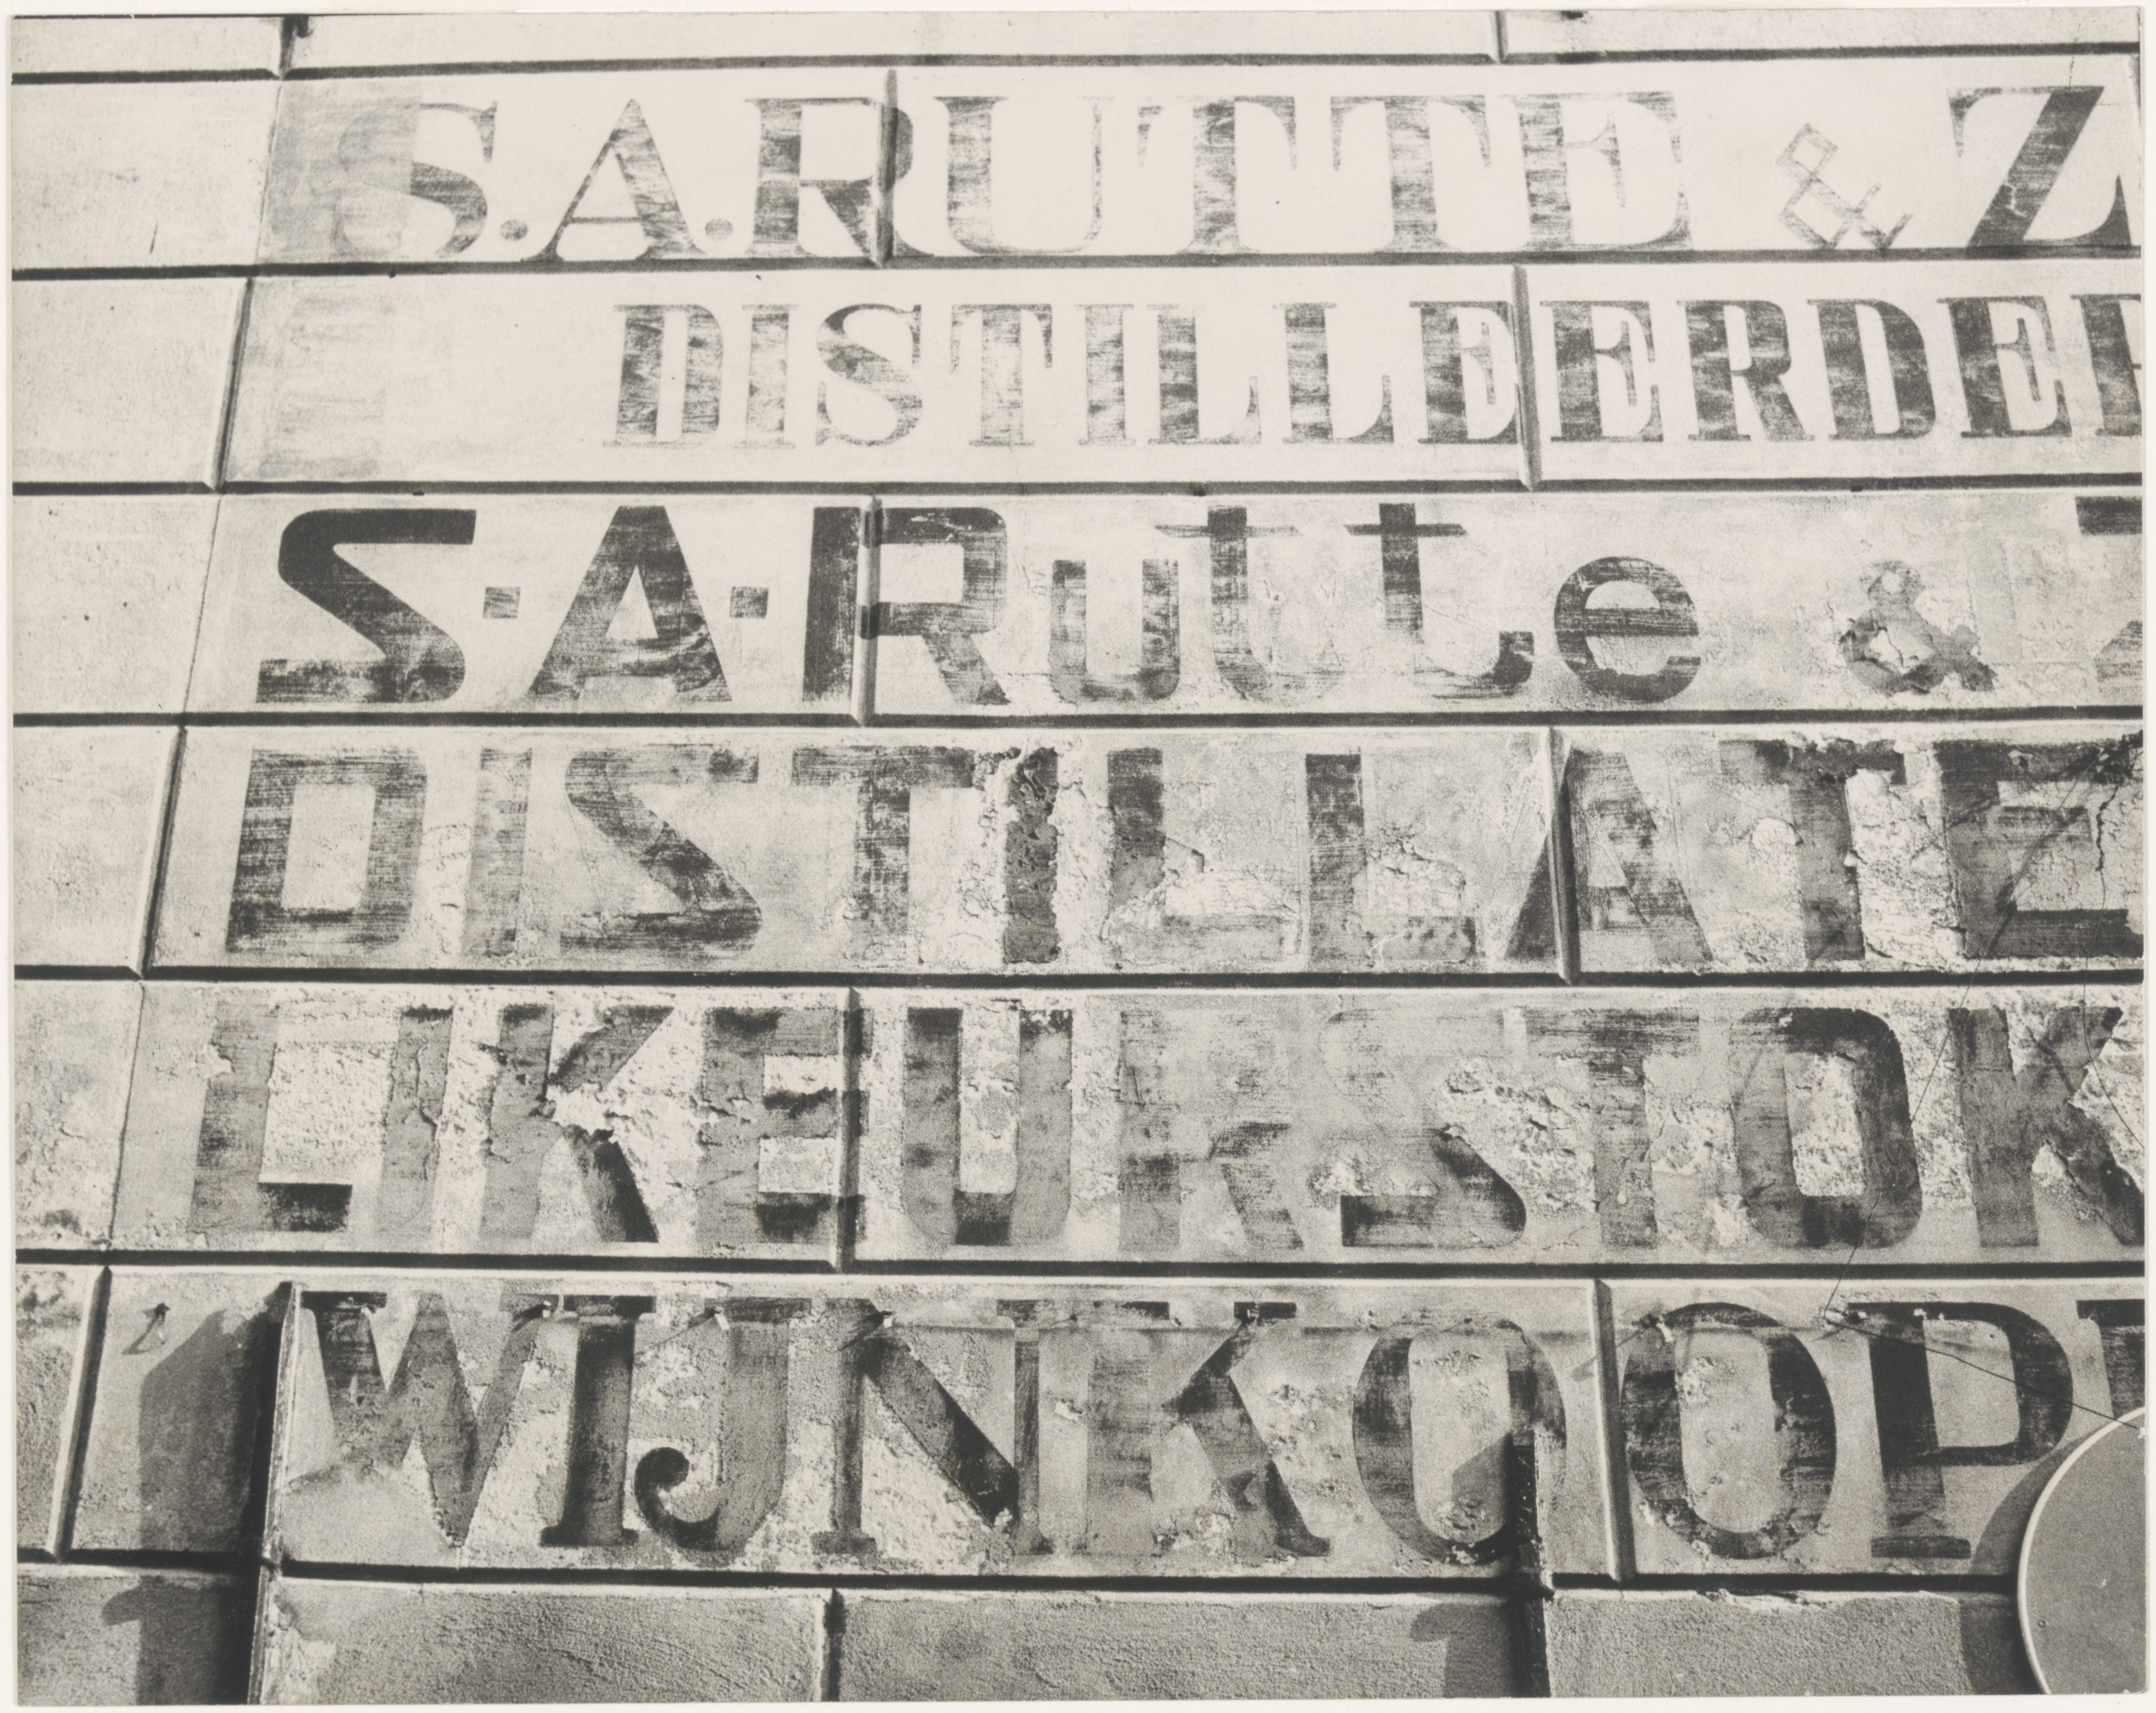 S.A.RUTTE & Z
DISTILLEERDER
S.A.Rutte & Z
DISTILLATE
LIKEURSTOK
WIJNKOOPE